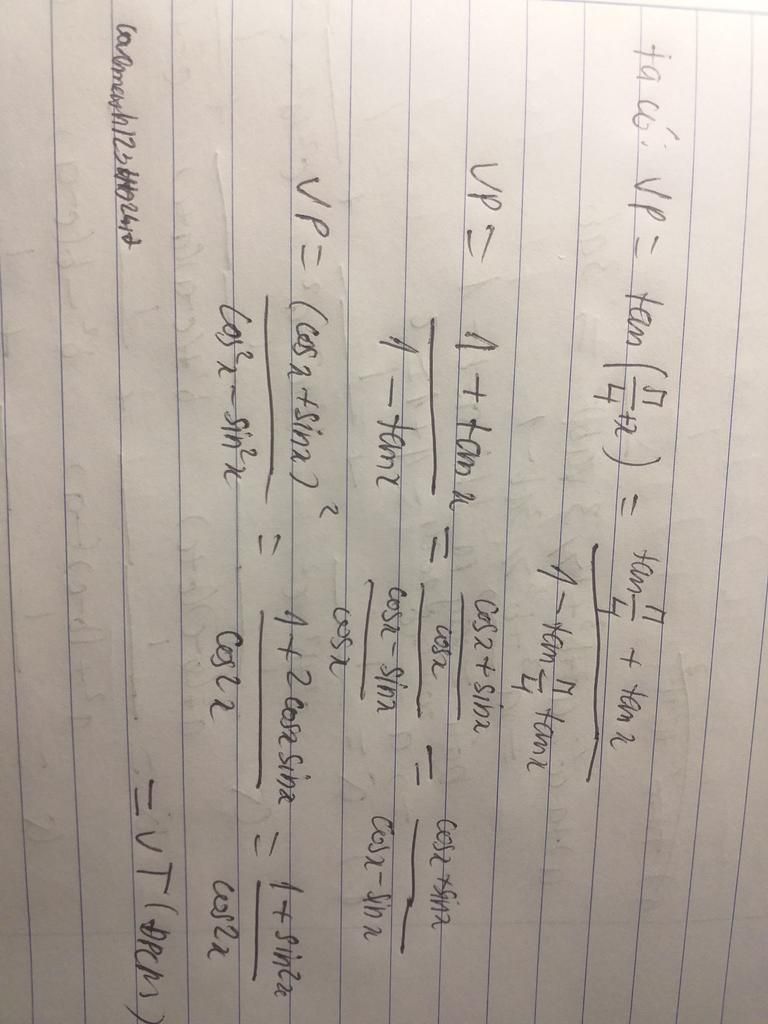 ta có: VP = tan(π/4 + x) = (tan π/4 + tan x)/(1 - tan π/4 tan x)
VP = (1 + tan x)/(1 - tan x) = ((cosx + sinx)/cosx)/((cosx - sinx)/cosx) = (cosx + sinx)/(cosx - sinx)
VP = (cosx + sinx)²/(cos²x - sin²x) = (1 + 2cosx sinx)/cos2x = (1 + sin2x)/cos2x
= VT (đpcm)